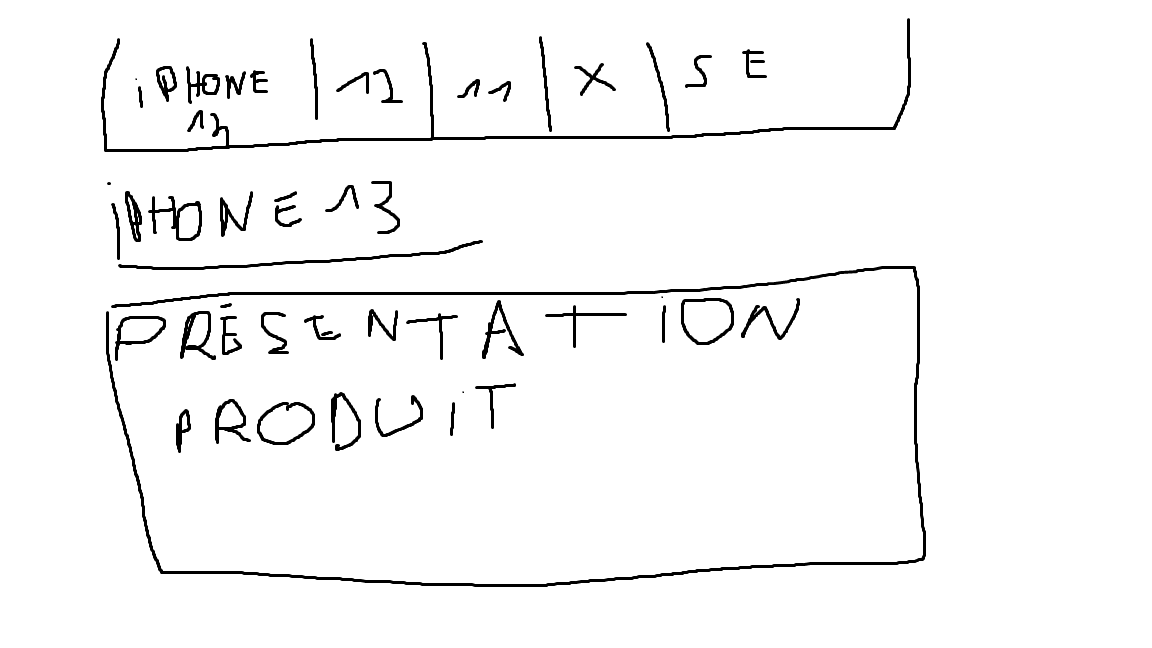 iPHONE 13 | 12 | 11 | X | SE
iPHONE 13
PRÉSENTATiON
PRODUiT